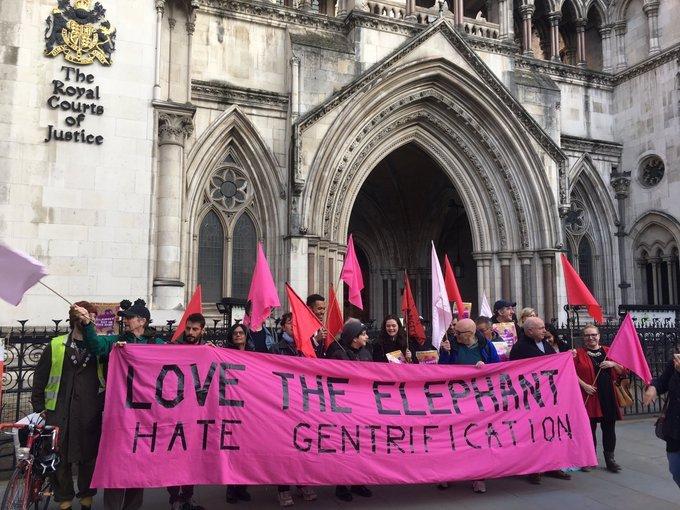 The
Royal
Courts of
Justice
LOVE THE ELEPHANT
HATE GENTRIFICATION